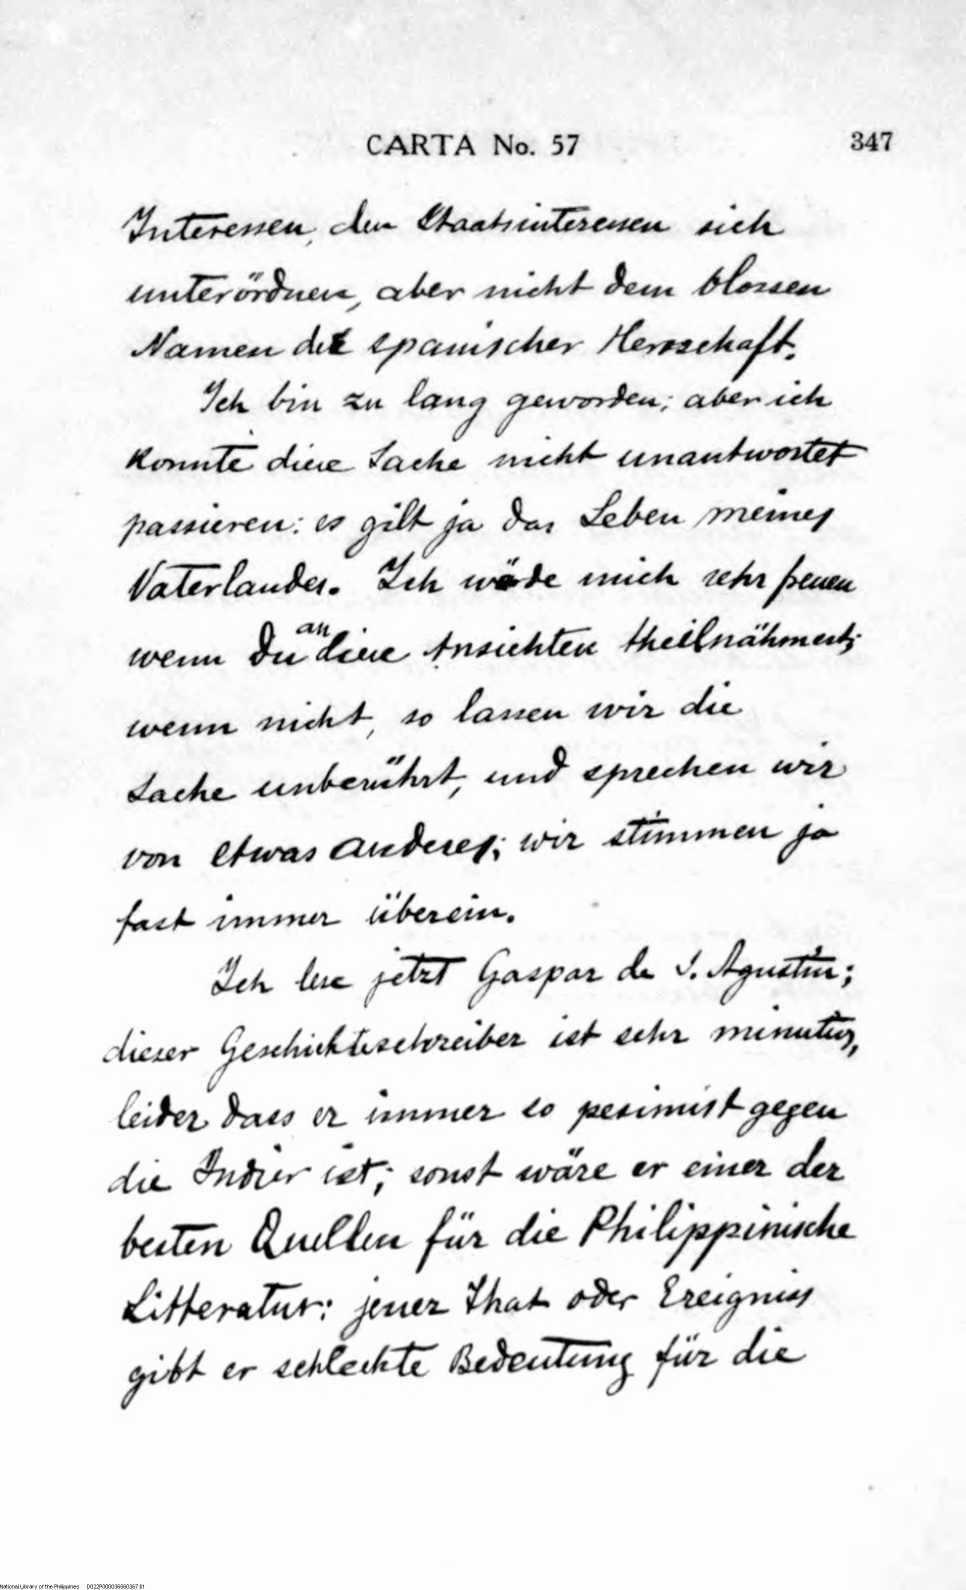 CARTA No. 57 347
Interessen, den Staatsinteressen sich
unterördnen, aber nicht dem blossen
Namen der spanischer Herrschaft.
Ich bin zu lang geworden; aber ich
konnte diese Sache nicht unantwortet
passieren: es gilt ja das Leben meines
Vaterlandes. Ich würde mich sehr freuen
wenn Du an diese Ansichten theilnähmest;
wenn nicht, so lassen wir die
Sache unberührt, und sprechen wir
von etwas anderes; wir stimmen ja
fast immer überein.
Ich lese jetzt Gaspar de S. Agustin;
dieser Geschichtsschreiber ist sehr minutiös,
leider dass er immer so pesimist gegen
die Indier ist; sonst wäre er einer der
besten Quellen für die Philippinische
Litteratur: jener That oder Ereigniss
gibt er schlechte Bedeutung für die
National Library of the Philippines